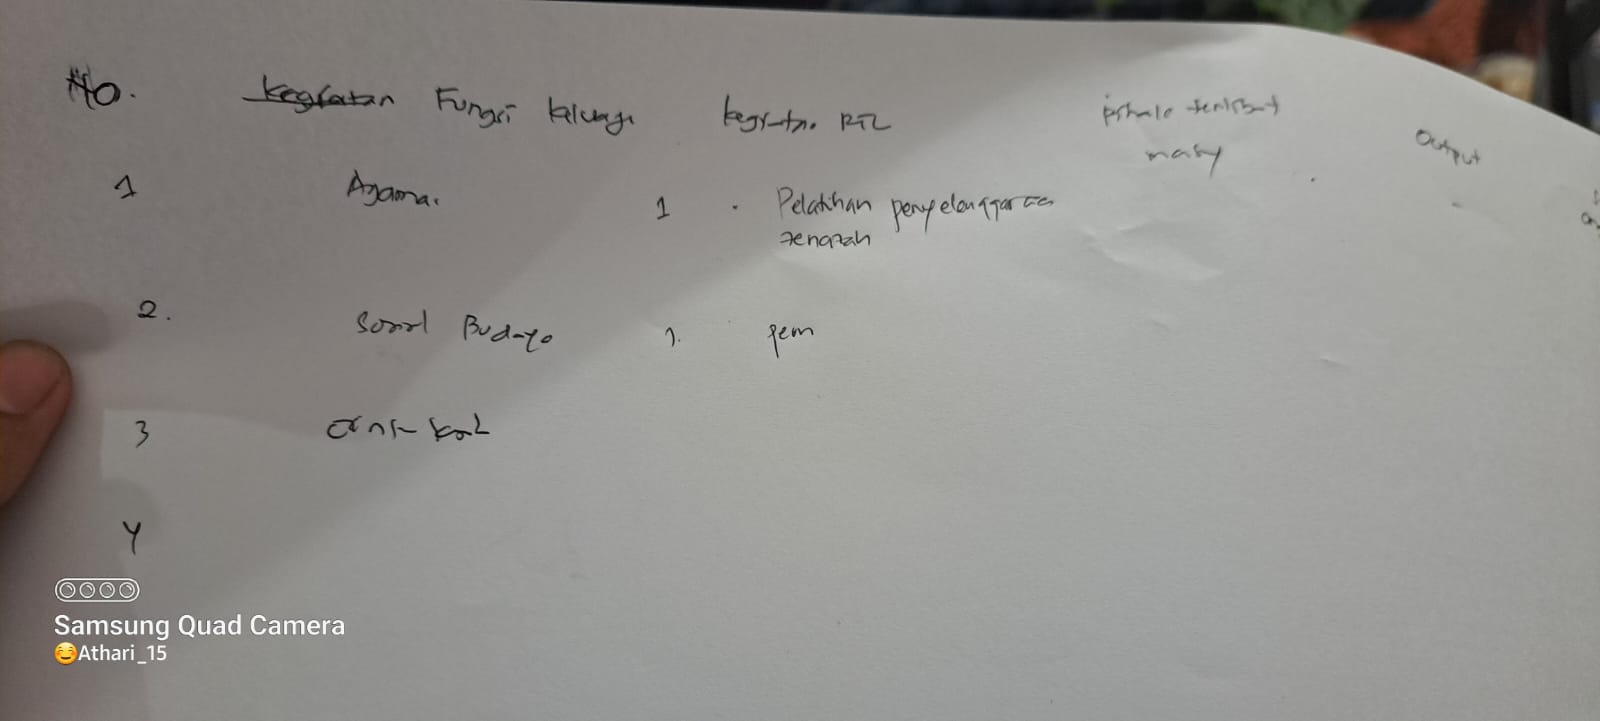 No. Kegiatan Fungsi keluarga kegiatan RTL
pihak terlibat
masy
Output
1 Agama. 1 . Pelatihan penyelenggaraan
Jenazah
2. Sosial Budaya 1. pem
3
4
Samsung Quad Camera
😊Athari_15